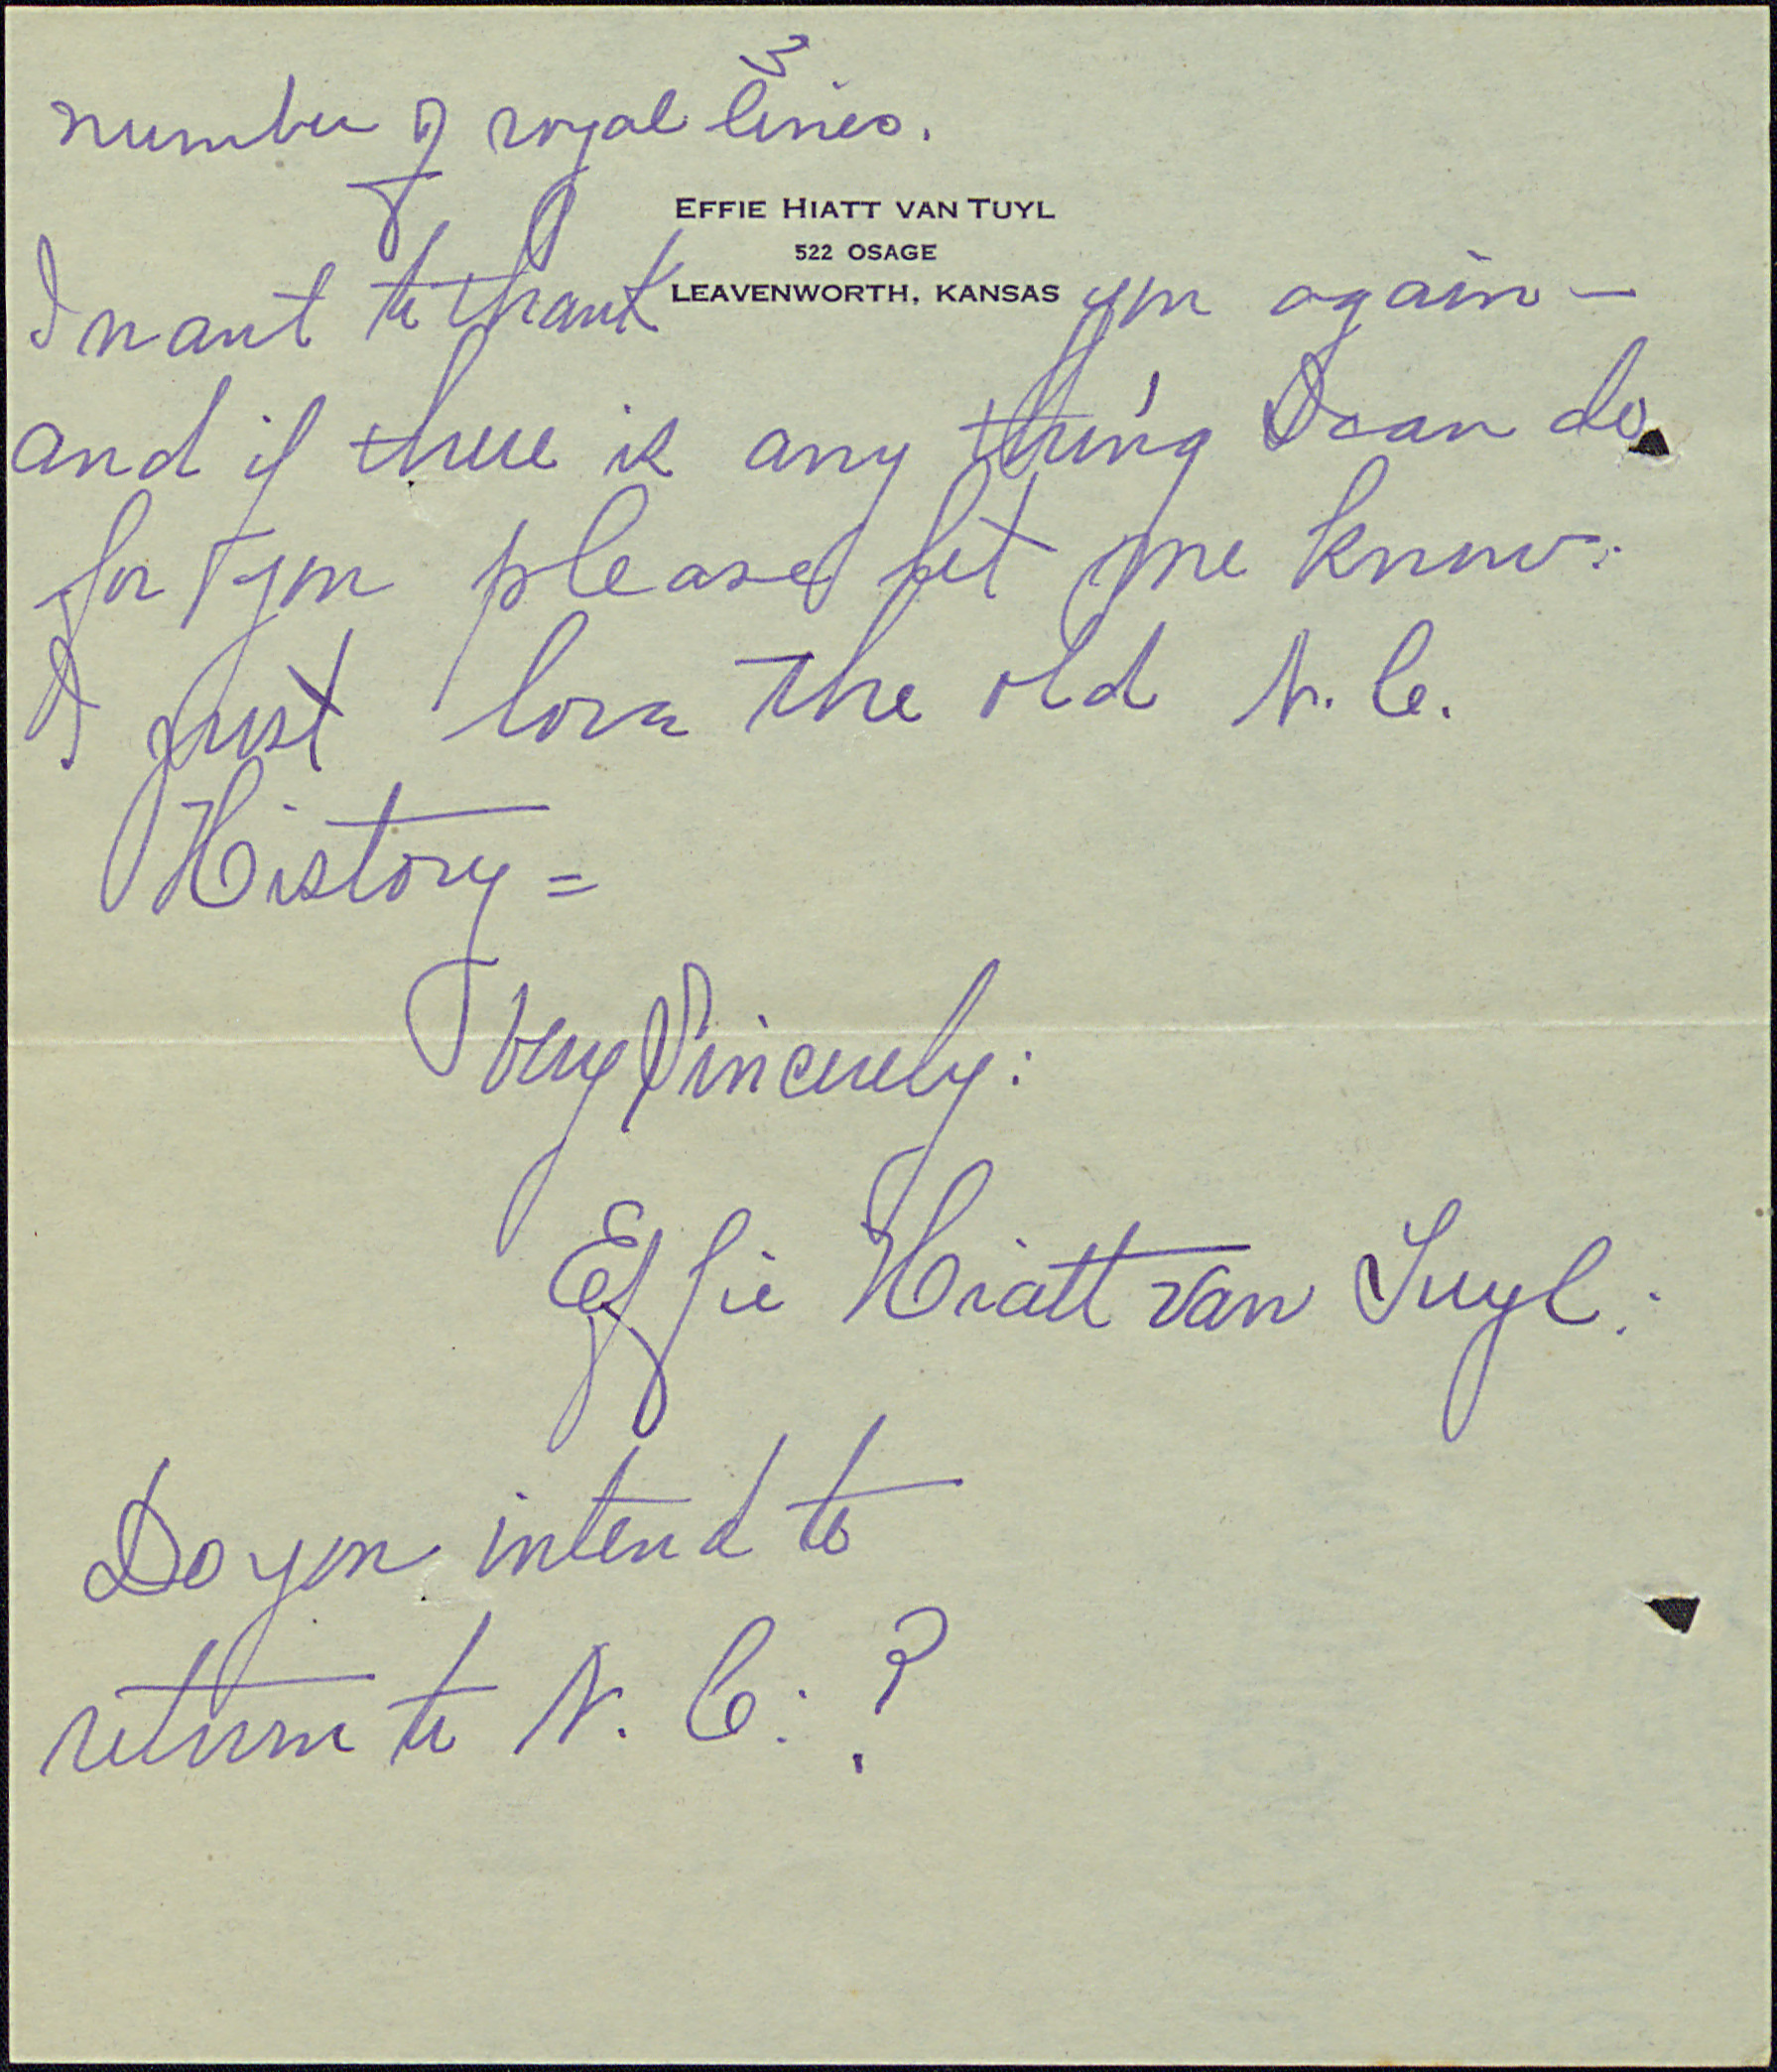 3
number of royal lines.
EFFIE HIATT VAN TUYL
522 OSAGE
LEAVENWORTH, KANSAS
I want to thank you again –
and if there is any thing I can do
for you please let me know.
I just love the old N. C.
History =
Very Sincerely:
Effie Hiatt Van Tuyl:
Do you intend to
return to N. C. ?